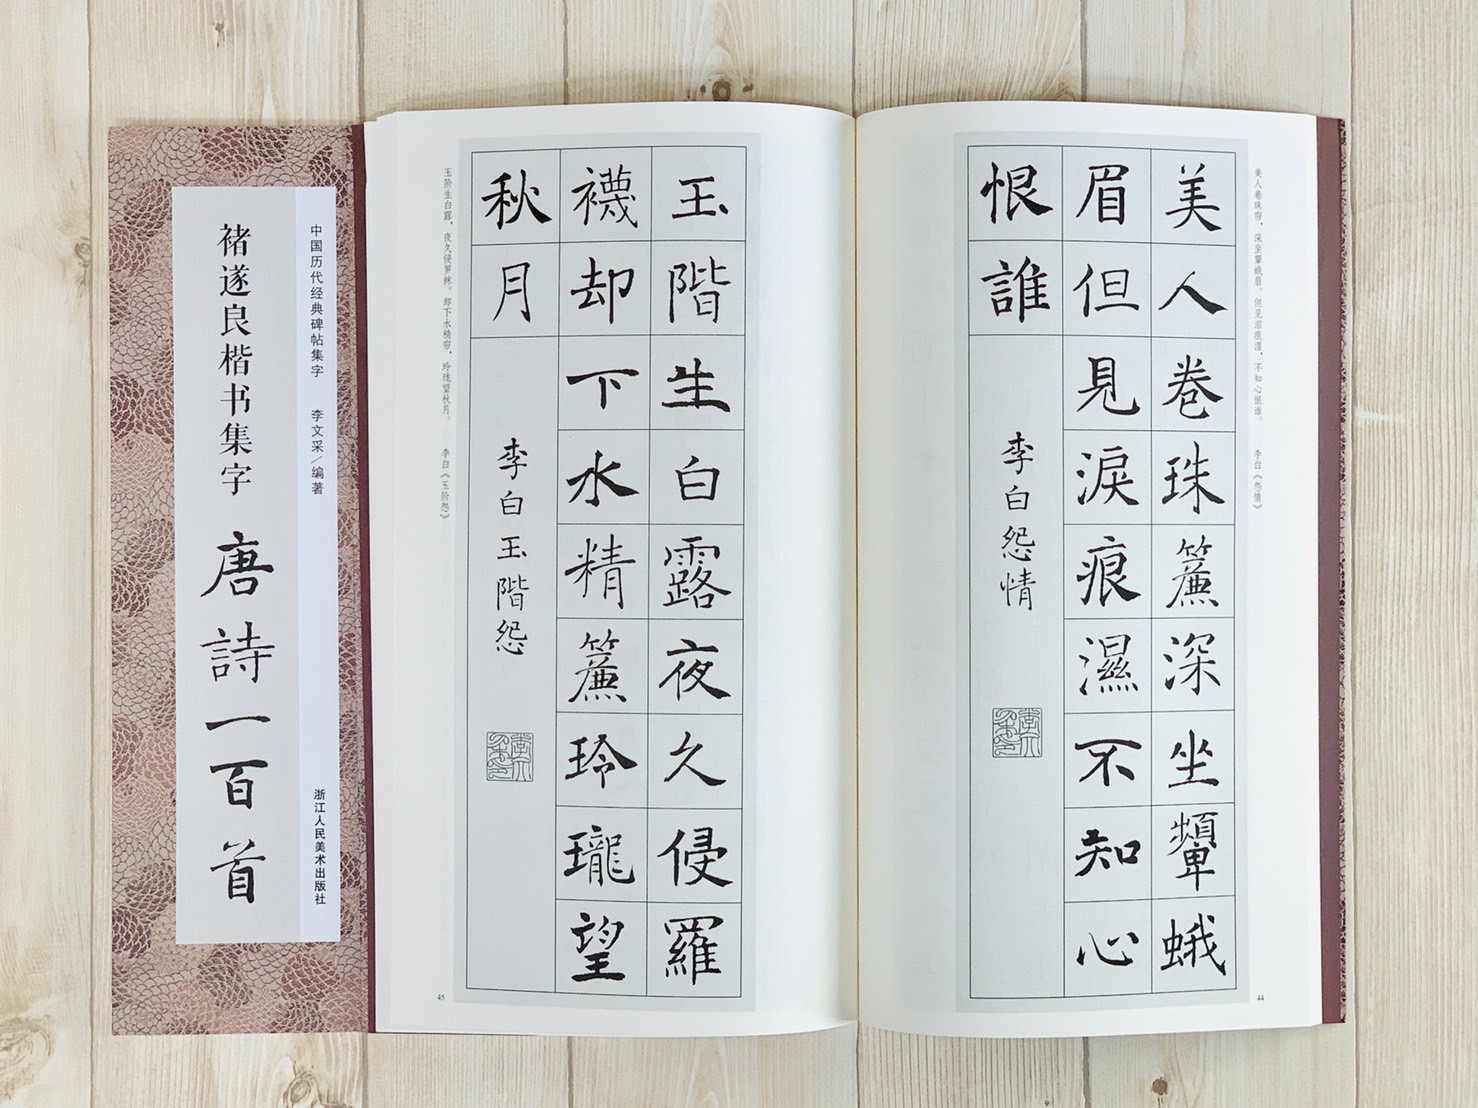 美人卷珠簾深坐顰蛾
眉但見淚痕濕不知心
恨誰
李白怨情
美人卷珠帘，深坐颦蛾眉。但见泪痕湿，不知心恨谁。 李白《怨情》
44
玉階生白露夜久侵羅
襪却下水精簾玲瓏望
秋月
李白玉階怨
玉阶生白露，夜久侵罗袜。却下水精帘，玲珑望秋月。 李白《玉阶怨》
45
中国历代经典碑帖集字 李文采／编著
浙江人民美术出版社
褚遂良楷书集字 唐詩一百首